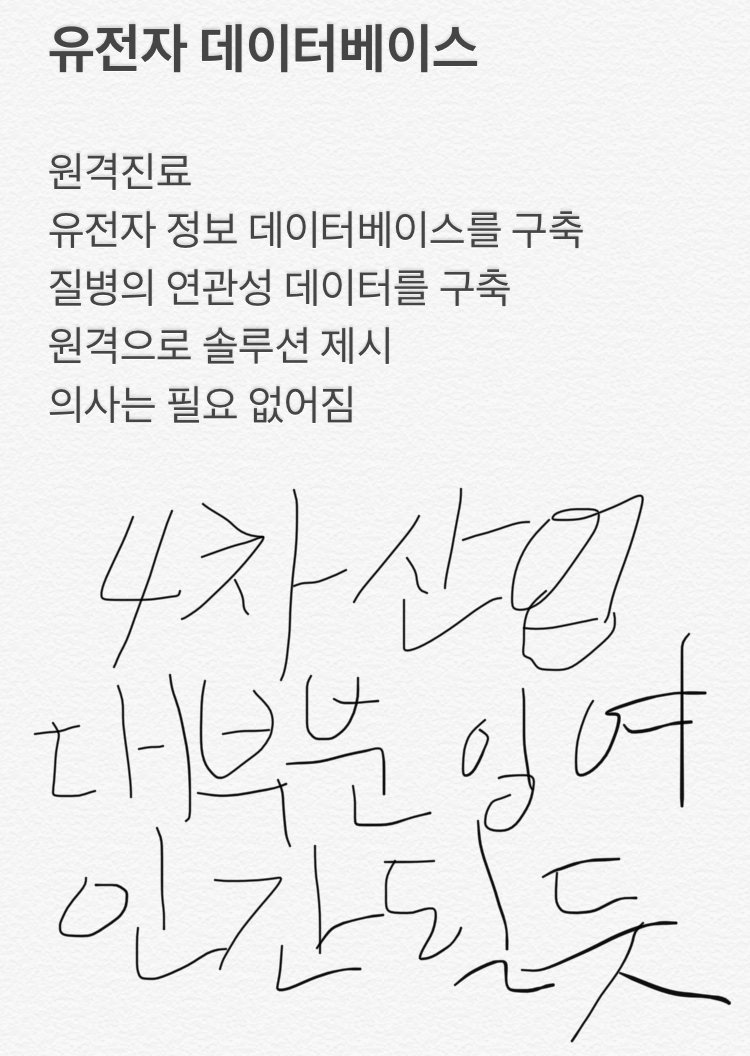 유전자 데이터베이스
원격진료
유전자 정보 데이터베이스를 구축
질병의 연관성 데이터를 구축
원격으로 솔루션 제시
의사는 필요 없어짐
4차 산업
대부분 잉여
인간 될 듯